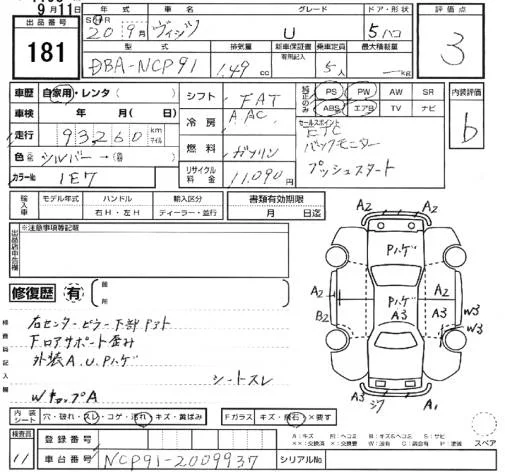 9月11日
出品番号
181
年式 グレード ドア・形状
S H R
20 9月 ヴィッツ U 5ハコ
型式 排気量 新車保証書 乗車定員 最大積載量
有用記入
DBA-NCP91 1.49cc 5人 kg
評価点
3
車歴 自家用・レンタ( )
車検 年 月( 日)
走行 93,260 km マイル
色 シルバー →( )
カラーNo. 1E7
シフト FAT
冷房 AAC
燃料 ガソリン
リサイクル料金 11,090円
純正のみ
PS PW AW SR
ABS エアB TV ナビ
セールスポイント
ETC
バックモニター
プッシュスタート
内装評価
b
輸入車 モデル年式 ハンドル 輸入区分
右H・左H ディーラー・並行
書類有効期限
月 日迄
出品店申告欄
※注意事項等記載
修復歴 有 箇所
検査員記入欄
右センターピラー下部 アト
フロアサポート歪み
外装A.U.Pハゲ
シートスレ
WキャップA
A2 A2
Pハゲ
A2 Pハゲ A2
B2 A3 A3 W3 W3
A3 A1
内装シート 穴・破れ・スレ・コゲ・汚れ・キズ・黄ばみ
Fガラス キズ・飛石・×要す
スペア
A:キズ P:ヘコミ B:キズ&ヘコミ S:サビ
検査員 11
登録番号
車台番号 NCP91-2009937
シリアルNo.